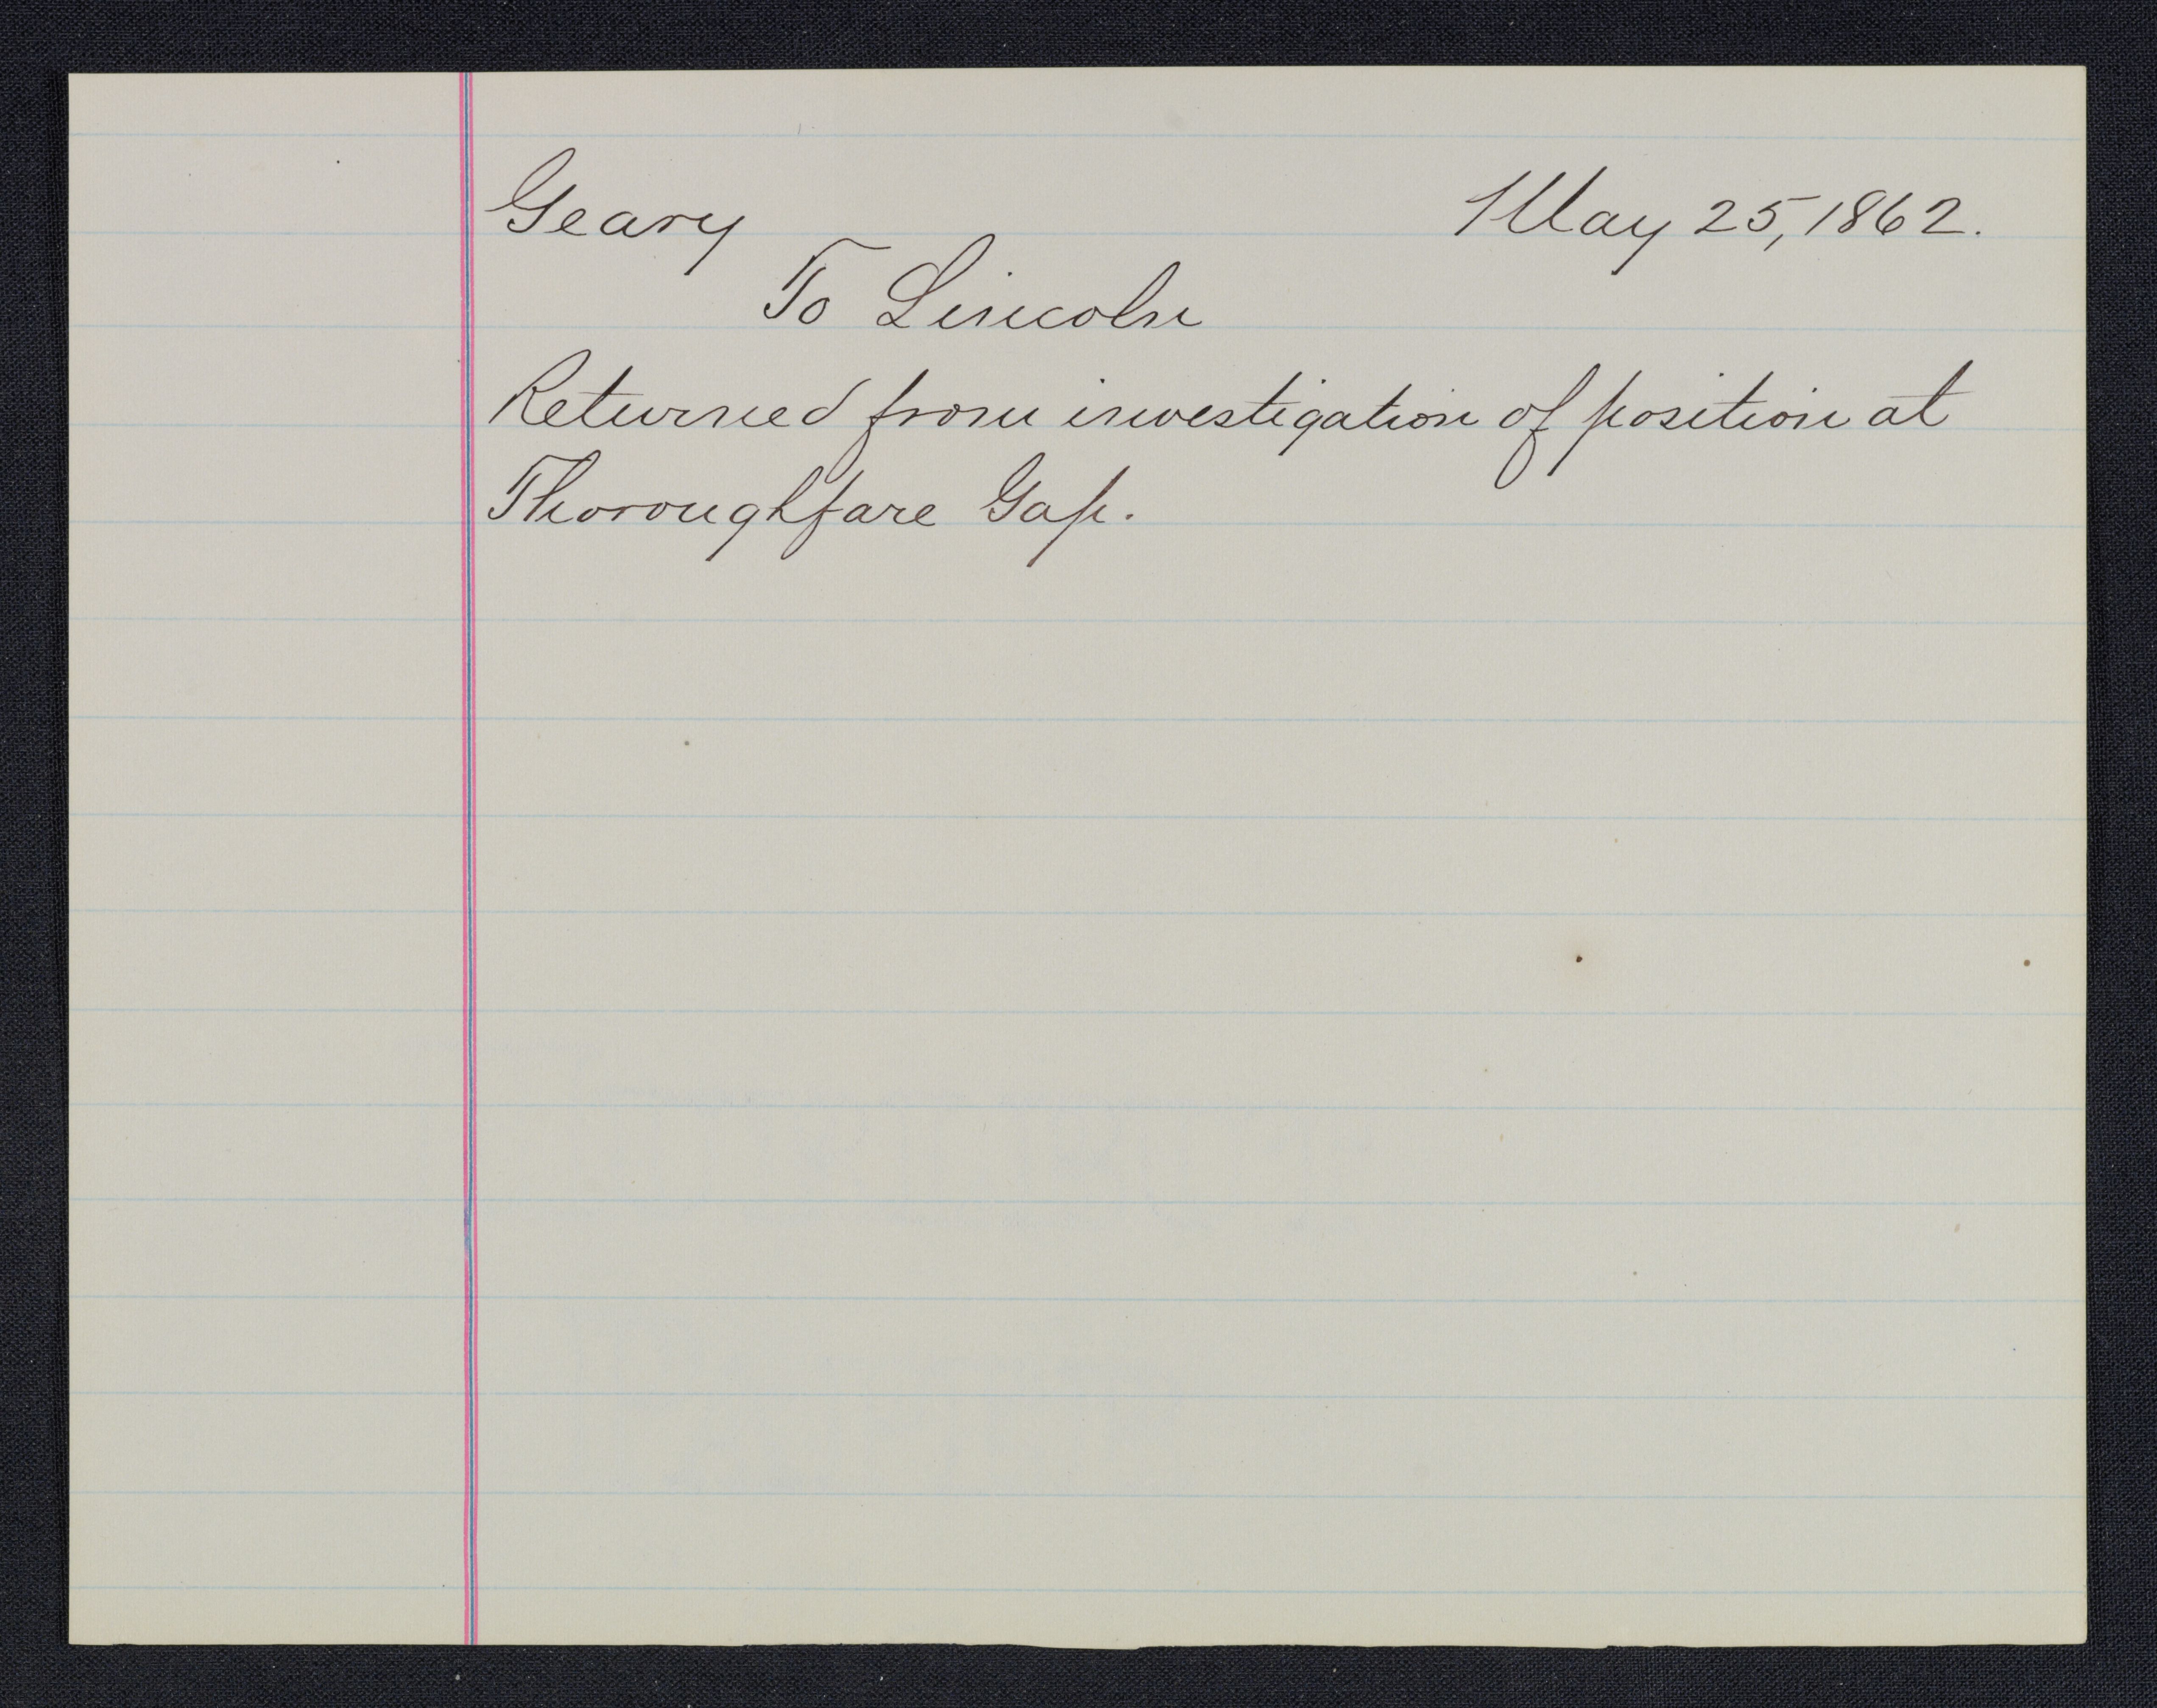 Geary May 25, 1862.
To Lincoln
Returned from investigation of position at
Thoroughfare Gap.